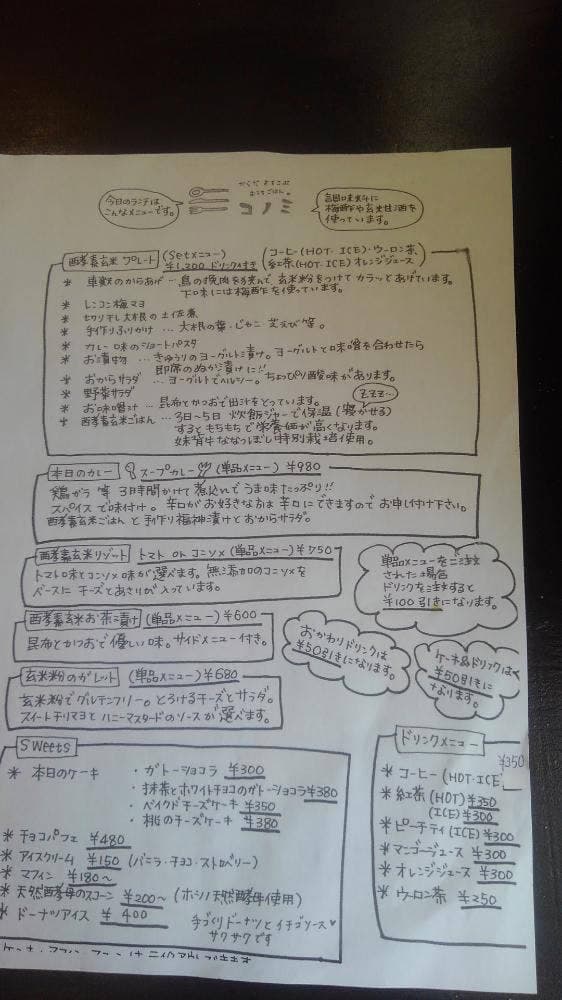 今日のランチは
こんなメニューです。
からだよろこぶ
おうちごはん。
コノミ
調味料に
梅酢や玄米甘酒を
使っています。
酵素玄米プレート (Setメニュー) ¥1,200 ドリンク付き (コーヒー(HOT・ICE)・ウーロン茶、紅茶(HOT・ICE)オレンジジュース)
* 車麩のからあげ…鳥の挽肉を挟んで、玄米粉をつけてカラッとあげています。
下味には梅酢を使っています。
* レンコン梅マヨ
* 切り干し大根の土佐煮
* 手作りふりかけ…大根の葉・じゃこ 芝えび 等。
* カレー味のショートパスタ
* お漬物…きゅうりのヨーグルト漬け。ヨーグルトと味噌を合わせたら
即席のぬか漬けに!!
* おからサラダ…ヨーグルトでヘルシー。ちょっぴり酸味があります。
* 野菜サラダ
* お味噌汁…昆布とかつおで出汁をとっています。
ZZZ…
* 酵素玄米ごはん…3日〜5日 炊飯ジャーで保温(寝かせる)
すると もちもちで栄養価が高くなります。
妹背牛ななつぼし特別栽培使用。
本日のカレー スープカレー (単品メニュー) ¥980
鶏ガラ 等 3時間かけて煮込んでうま味たっぷり!!
スパイスで味付け。辛口がお好きな方は辛口にできますので お申し付け下さい。
酵素玄米ごはんと手作り福神漬けとおからサラダ。
酵素玄米リゾット トマト or コンソメ (単品メニュー) ¥750
トマト味とコンソメ味が選べます。無添加のコンソメを
ベースに チーズとあさりが入っています。
単品メニューをご注文
された場合
ドリンクを注文すると
¥100引きになります。
酵素玄米お茶漬け (単品メニュー) ¥600
昆布とかつおで優しい味。サイドメニュー付き。
おかわりドリンクは
¥50引きになります。
ケーキ品ドリンクは
¥50引きに
なります。
玄米粉のガレット (単品メニュー) ¥680
玄米粉でグルテンフリー。とろけるチーズとサラダ。
スイートチリマヨとハニーマスタードのソースが選べます。
Sweets
* 本日のケーキ ・ガトーショコラ ¥300
・抹茶とホワイトチョコのガトーショコラ ¥380
・ベイクドチーズケーキ ¥350
・桃のチーズケーキ ¥380
* チョコパフェ ¥480
* アイスクリーム ¥150 (バニラ・チョコ・ストロベリー)
* マフィン ¥180〜
* 天然酵母のスコーン ¥200〜 (ホシノ天然酵母使用)
* ドーナツアイス ¥400 手づくりドーナツとイチゴソース♥
サクサクです
ドリンクメニュー
¥350
* コーヒー (HOT・ICE)
* 紅茶 (HOT) ¥350
(ICE) ¥300
* ピーチティ (ICE) ¥300
* マンゴージュース ¥300
* オレンジジュース ¥300
* ウーロン茶 ¥250